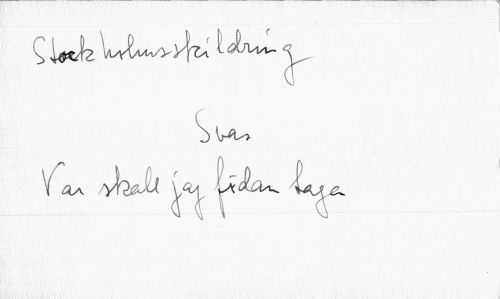 Stockholmsskildring
Svar
Var skall jag fidan taga